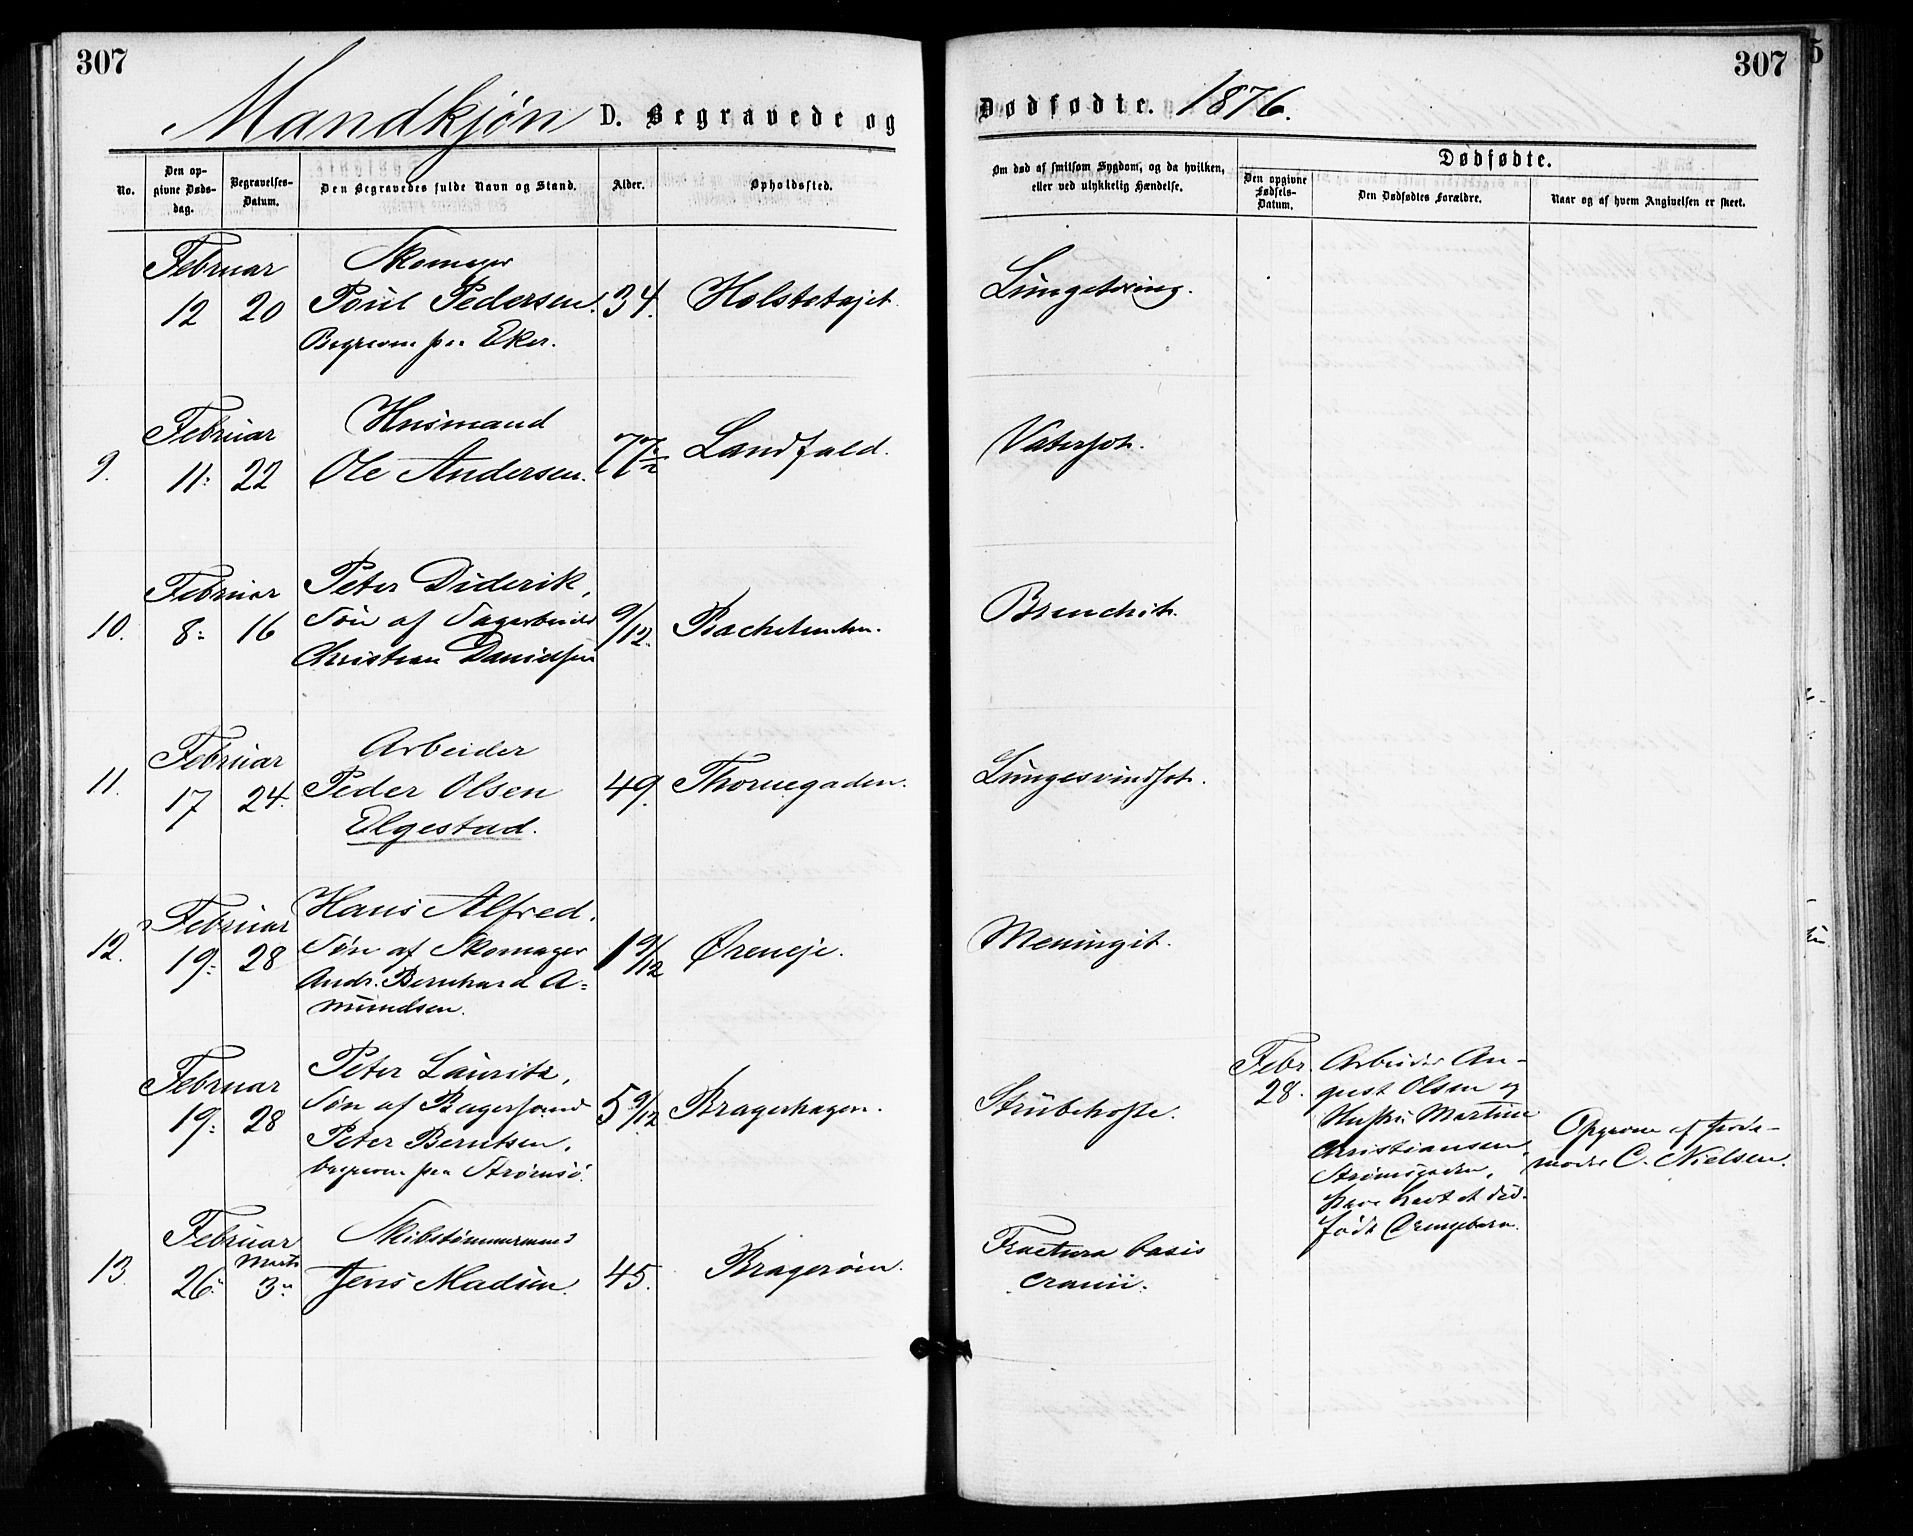 307
307
Mandkjøn D. Begravede og Dødfødte. 1876.
No.
Den opgivne Dødsdag.
Begravelses-Datum.
Den Begravedes fulde Navn og Stand.
Alder.
Opholdssted.
Om død af smitsom Sygdom, og da hvilken,
eller ved ulykkelig Hændelse.
Dødfødte.
Den opgivne Fødsels-Datum.
Den Dødfødtes Forældre.
Naar og af hvem Angivelsen er skeet.
Februar Skomager
12 20 Poul Pedersen. 34. Lungetæring.
Begraven paa Eker.
Februar Husmand
9. 11. 22 Ole Andersen. 77½ Landfald. Vatersot.
Februar Peter Diderik,
10. 8. 16 Søn af Sagarbeider 9/12. Bronchit.
Christian Davidsen
Februar Arbeider
11. 17 24. Peder Olsen 49. Thornegaden. Lungesvindsot.
Elgestad.
Februar Hans Alfred.
12. 19. 28 Søn af Skomager 1 9/12 Øreneje. Meningit.
Andr. Bernhard A=
mundsen.
Februar Peter Lauritz,
19. 28 Søn af 5 9/12 Bragerhagen. Strubehoste.
Peter Berntsen,
begraven paa Strømsø.
Febr. 28. Arbeider Au-
gust Olsen og
Hustru Martine
Christiansen,
Strømsgaden,
have havt et død-
født Drengebarn.
Opgiven af Jorde-
moder C. Nielsen.
Februar Skibstømmermand
13. 26. Marts 3. Jens Madsen. 45. Bragerøen. Fractura basis
cranii.